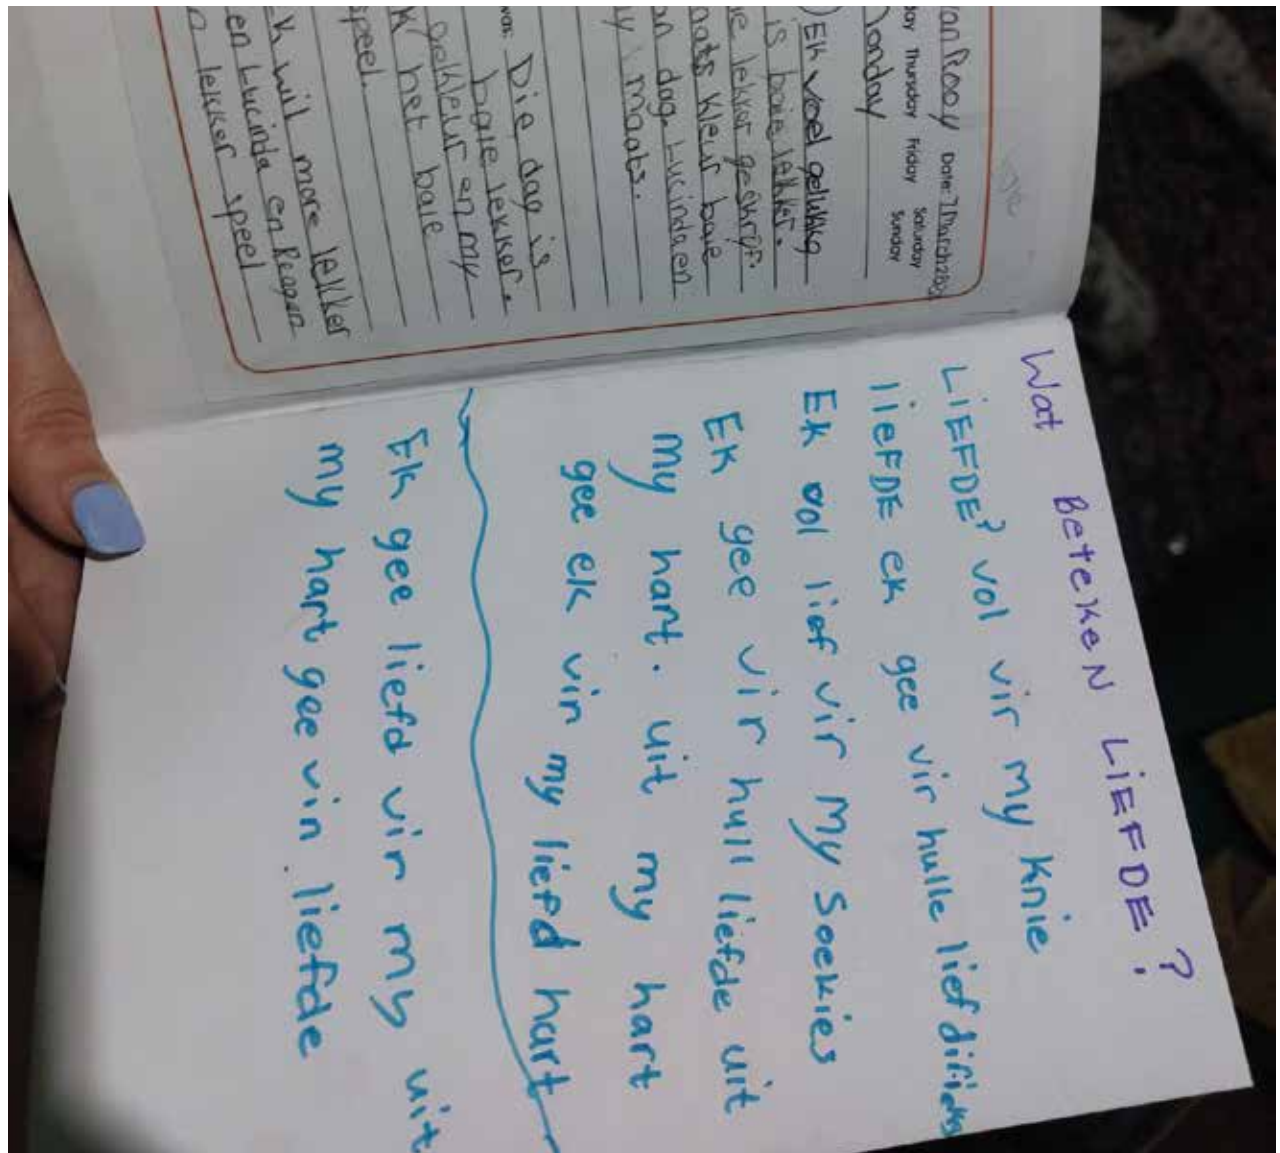 an Rooy Date: 7 March 20
day Thursday Friday Saturday Sunday
Monday
Ek voel gelukkig
is baie lekker.
e lekker geskryf.
aats kleur baie
an dag. Lucinda en
y maats.
was: Die dag is
baie lekker.
gekleur en my
k het baie
speel.
k wil more lekker
en Lucinda en Reagen
n lekker speel
Wat BeteKeN LiEFDE?
LiEFDE? vol vir my Knie
liEFDE ek gee vir hulle lief
Ek vol lief vir My Soekies
Ek gee vir hull liefde uit
my hart. uit my hart
gee ek vir my liefd hart
Ek gee liefd vir my uit
my hart gee vin liefde